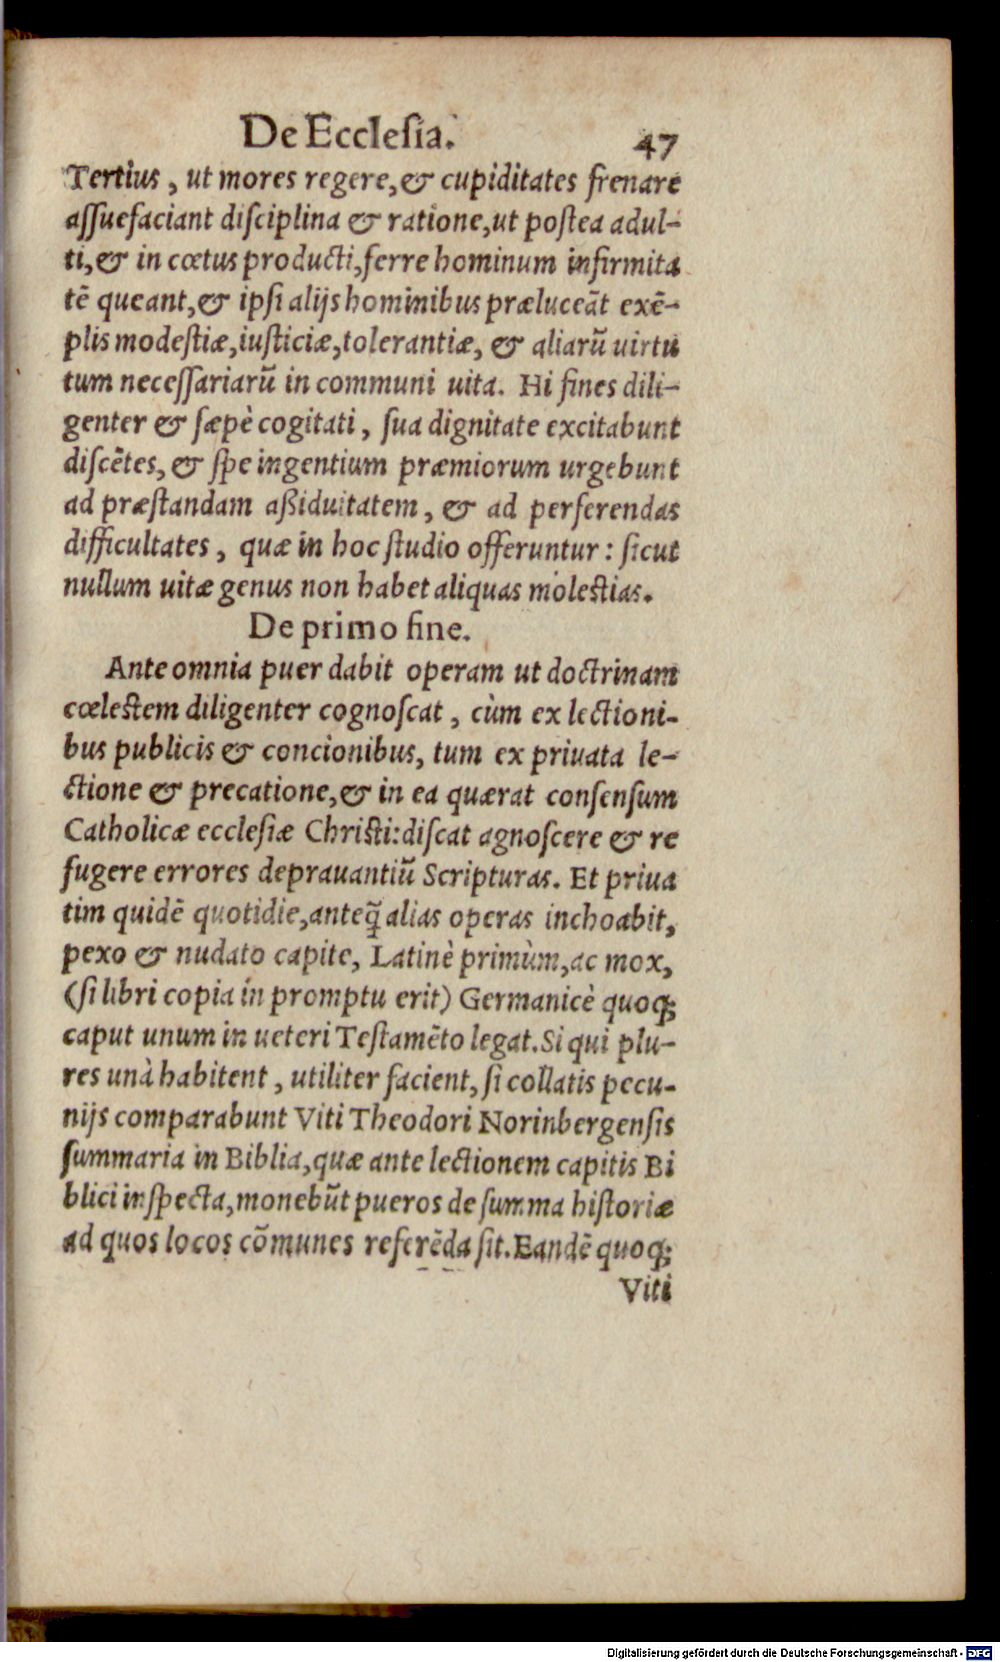 De Ecclesia. 47
Tertius, ut mores regere, & cupiditates frenare
assuefaciant disciplina & ratione, ut postea adul-
ti, & in cœtus producti, ferre hominum infirmita
tē queant, & ipsi alijs hominibus præluceāt exē-
plis modestiæ, iusticiæ, tolerantiæ, & aliarū uirtu
tum necessariarū in communi uita. Hi fines dili-
genter & sæpè cogitati, sua dignitate excitabunt
discētes, & spe ingentium præmiorum urgebunt
ad præstandam aßiduitatem, & ad perferendas
difficultates, quæ in hoc studio offeruntur: sicut
nullum uitæ genus non habet aliquas molestias.
De primo fine.
Ante omnia puer dabit operam ut doctrinam
cœlestem diligenter cognoscat, cùm ex lectioni-
bus publicis & concionibus, tum ex priuata le-
ctione & precatione, & in ea quærat consensum
Catholicæ ecclesiæ Christi: discat agnoscere & re
fugere errores deprauantiū Scripturas. Et priua
tim quidē quotidie, anteq̃ alias operas inchoabit,
pexo & nudato capite, Latinè primùm, ac mox,
(si libri copia in promptu erit) Germanicè quoq;
caput unum in ueteri Testamēto legat. Si qui plu-
res unà habitent, utiliter facient, si collatis pecu-
nijs comparabunt Viti Theodori Norinbergensis
summaria in Biblia, quæ ante lectionem capitis Bi
blici inspecta, monebūt pueros de summa historiæ
ad quos locos cōmunes referēda sit. Eandē quoq;
Viti
Digitalisierung gefördert durch die Deutsche Forschungsgemeinschaft - DFG